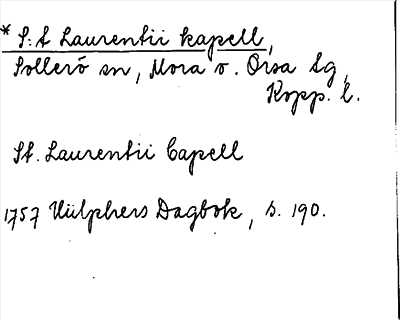 * S:t Laurentii kapell,
Sollerö sn, Mora o. Orsa tg,
Kopp. l.
St. Laurentii Capell
1757 Hülphers Dagbok, s. 190.